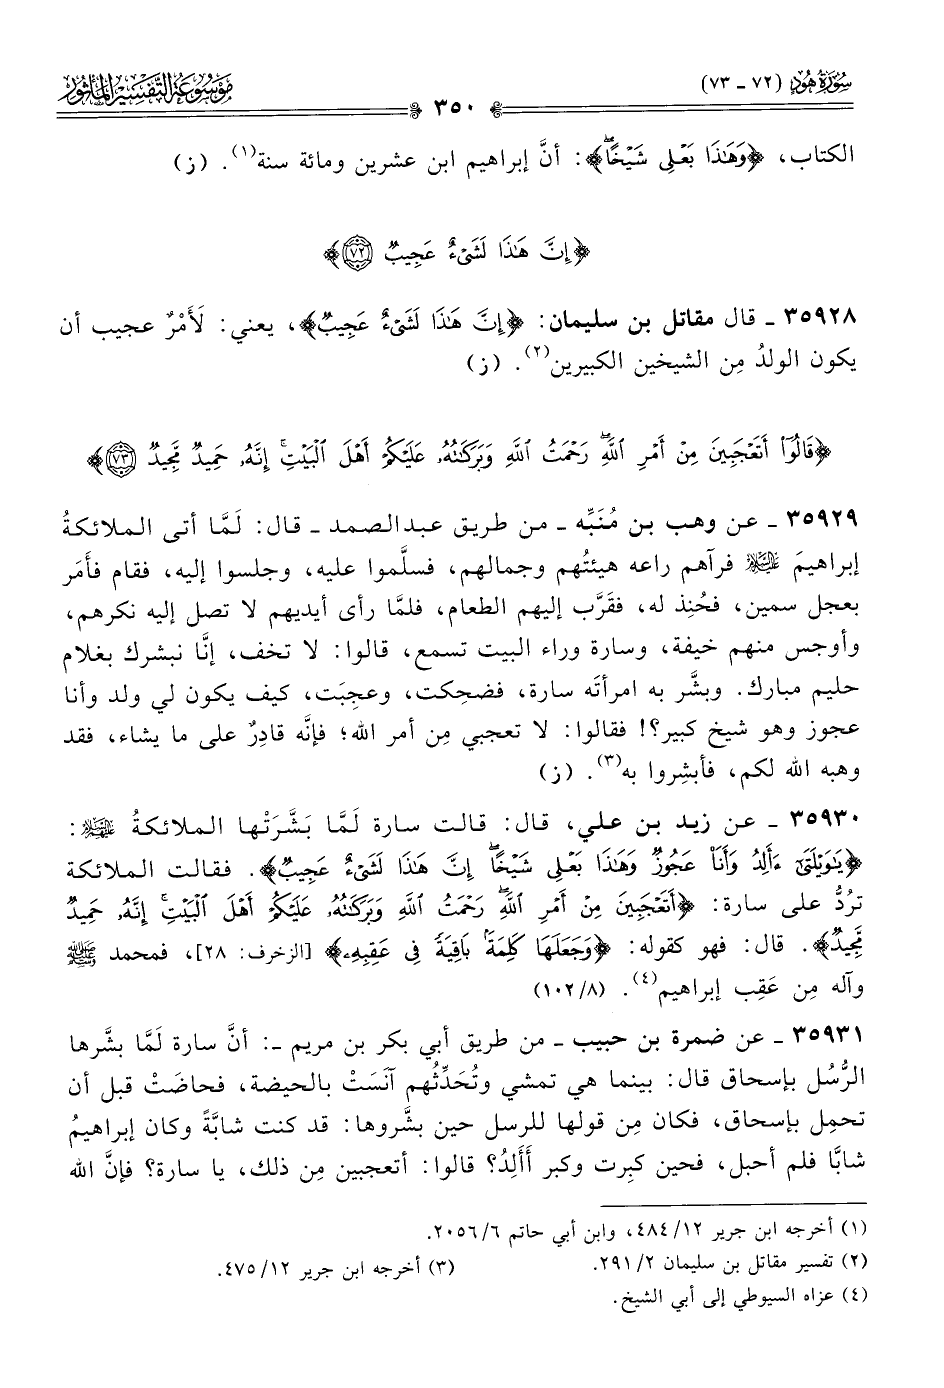 سورة هود (٧٢ - ٧٣)
٣٥٠
موسوعة التفسير المأثور
الكتاب، ﴿وَهَٰذَا بَعْلِى شَيْخًا﴾: أنَّ إبراهيم ابن عشرين ومائة سنة(١). (ز)
﴿إِنَّ هَٰذَا لَشَىْءٌ عَجِيبٌ ٧٢﴾
٣٥٩٢٨ - قال مقاتل بن سليمان: ﴿إِنَّ هَٰذَا لَشَىْءٌ عَجِيبٌ﴾، يعني: لَأَمْرٌ عجيب أن
يكون الولدُ مِن الشيخين الكبيرين(٢). (ز)
﴿قَالُوٓا۟ أَتَعْجَبِينَ مِنْ أَمْرِ ٱللَّهِ ۖ رَحْمَتُ ٱللَّهِ وَبَرَكَٰتُهُۥ عَلَيْكُمْ أَهْلَ ٱلْبَيْتِ ۚ إِنَّهُۥ حَمِيدٌ مَّجِيدٌ ٧٣﴾
٣٥٩٢٩ - عن وهب بن مُنَبِّه - من طريق عبدالصمد - قال: لَمَّا أتى الملائكةُ
إبراهيمَ عليه السلام فرآهم راعه هيئتُهم وجمالهم، فسلَّموا عليه، وجلسوا إليه، فقام فأَمَر
بعجل سمين، فحُنِذ له، فقَرَّب إليهم الطعام، فلمَّا رأى أيديهم لا تصل إليه نكرهم،
وأوجس منهم خيفة، وسارة وراء البيت تسمع، قالوا: لا تخف، إنَّا نبشرك بغلام
حليم مبارك. وبشَّر به امرأتَه سارة، فضحِكت، وعجِبَت، كيف يكون لي ولد وأنا
عجوز وهو شيخ كبير؟! فقالوا: لا تعجبي مِن أمر الله؛ فإنَّه قادِرٌ على ما يشاء، فقد
وهبه الله لكم، فأبشِروا به(٣). (ز)
٣٥٩٣٠ - عن زيد بن علي، قال: قالت سارة لَمَّا بَشَّرَتْها الملائكةُ عليهم السلام:
﴿يَٰوَيْلَتَىٰٓ ءَأَلِدُ وَأَنَا۠ عَجُوزٌ وَهَٰذَا بَعْلِى شَيْخًا ۖ إِنَّ هَٰذَا لَشَىْءٌ عَجِيبٌ﴾. فقالت الملائكة
تردُّ على سارة: ﴿أَتَعْجَبِينَ مِنْ أَمْرِ ٱللَّهِ ۖ رَحْمَتُ ٱللَّهِ وَبَرَكَٰتُهُۥ عَلَيْكُمْ أَهْلَ ٱلْبَيْتِ ۚ إِنَّهُۥ حَمِيدٌ
مَّجِيدٌ﴾. قال: فهو كقوله: ﴿وَجَعَلَهَا كَلِمَةًۢ بَاقِيَةً فِى عَقِبِهِۦ﴾ [الزخرف: ٢٨]، فمحمد ﷺ
وآله مِن عَقِب إبراهيم(٤). (١٠٢/٨)
٣٥٩٣١ - عن ضمرة بن حبيب - من طريق أبي بكر بن مريم -: أنَّ سارة لَمَّا بشَّرها
الرُّسُل بإسحاق قال: بينما هي تمشي وتُحَدِّثُهم آنَسَتْ بالحيضة، فحاضَتْ قبل أن
تحمِل بإسحاق، فكان مِن قولها للرسل حين بشَّروها: قد كنت شابَّةً وكان إبراهيمُ
شابًّا فلم أحبل، فحين كبِرت وكبر أَأَلِدُ؟ قالوا: أتعجبين مِن ذلك، يا سارة؟ فإنَّ الله
(١) أخرجه ابن جرير ١٢/ ٤٨٤، وابن أبي حاتم ٦/ ٢٠٥٦.
(٢) تفسير مقاتل بن سليمان ٢/ ٢٩١.
(٣) أخرجه ابن جرير ١٢/ ٤٧٥.
(٤) عزاه السيوطي إلى أبي الشيخ.